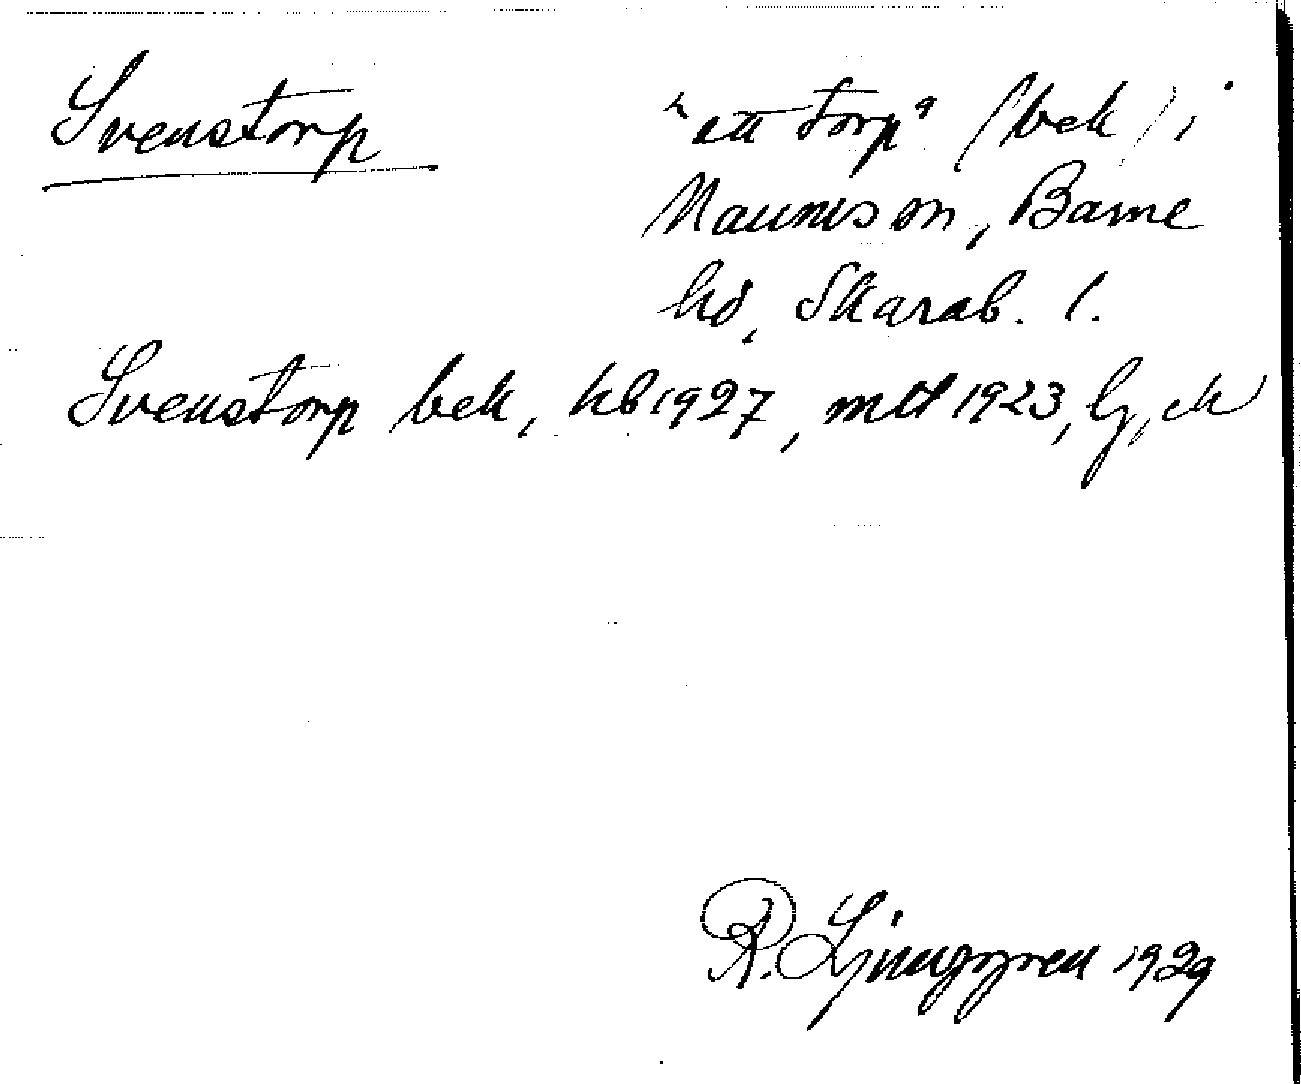 Svenstorp
"ett torp" (bek) i
Naumison, Barne
hd, Skarab. l.
Svenstorp bek, kb 1927, mtl 1923, lg, ek
R. Ljunggren 1929